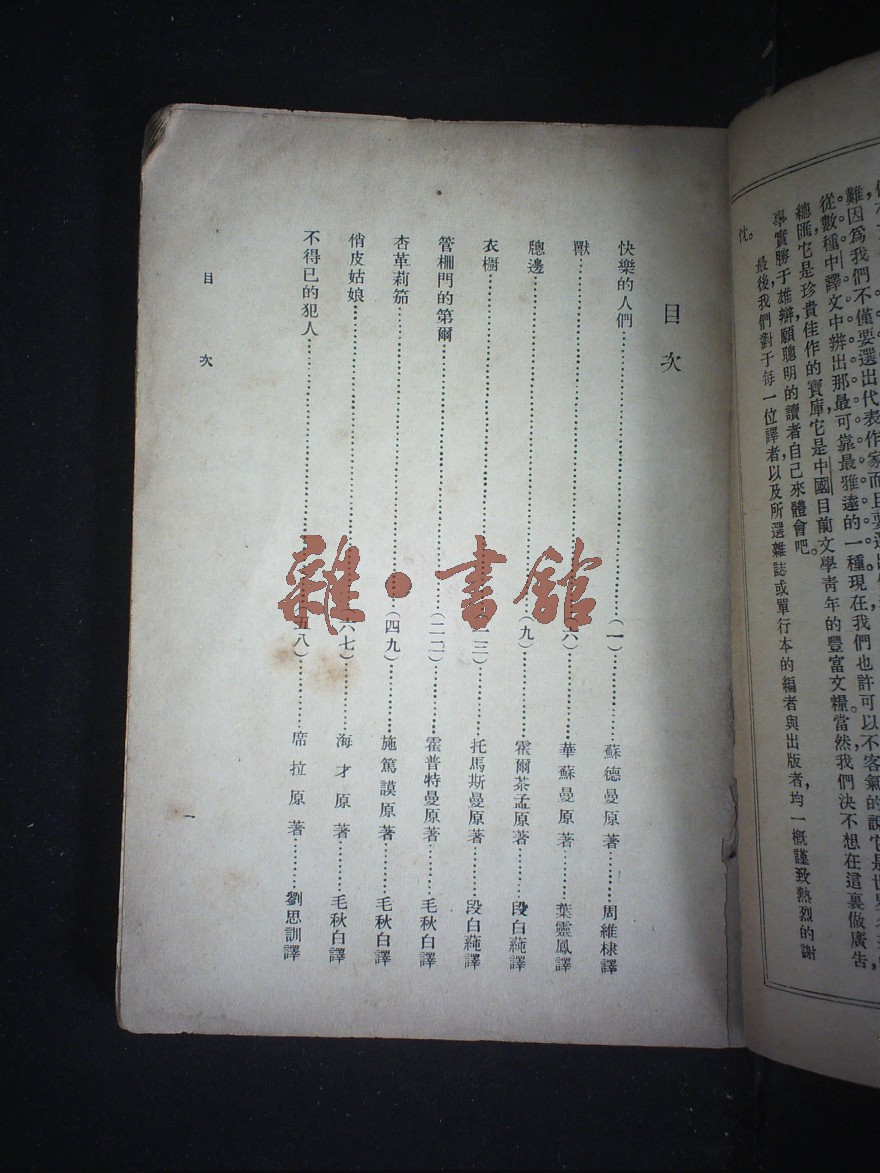 難因爲我們不僅要選出代表作家而且要選出
從數種中譯文中辨出那最可靠最雅達的一種現在我們也許可以不客氣的說它是世界
總匯,它是珍貴佳作的寶庫它是中國目前文學靑年的豐富文糧。當然,我們決不想在這裏做廣告
事實勝于雄辯,願聰明的讀者自己來體會吧。
最後,我們對于每一位譯者以及所選雜誌或單行本的編者與出版者,均一概謹致熱烈的謝
忱。
目次
快樂的人們……(一)……蘇德曼原著……周維棣譯
獸……(六)……華蘇曼原著……葉靈鳳譯
牕邊……(九)……霍爾茶孟原著……段白蒓譯
衣櫥……三)……托馬斯曼原著……段白蒓譯
管柵門的第爾……(二二)……霍普特曼原著……毛秋白譯
杏革莉笳……(四九)……施篤謨原著……毛秋白譯
俏皮姑娘……六七)……海才原著……毛秋白譯
不得已的犯人……五八)……席拉原著……劉思訓譯
目次
一
雜·書館